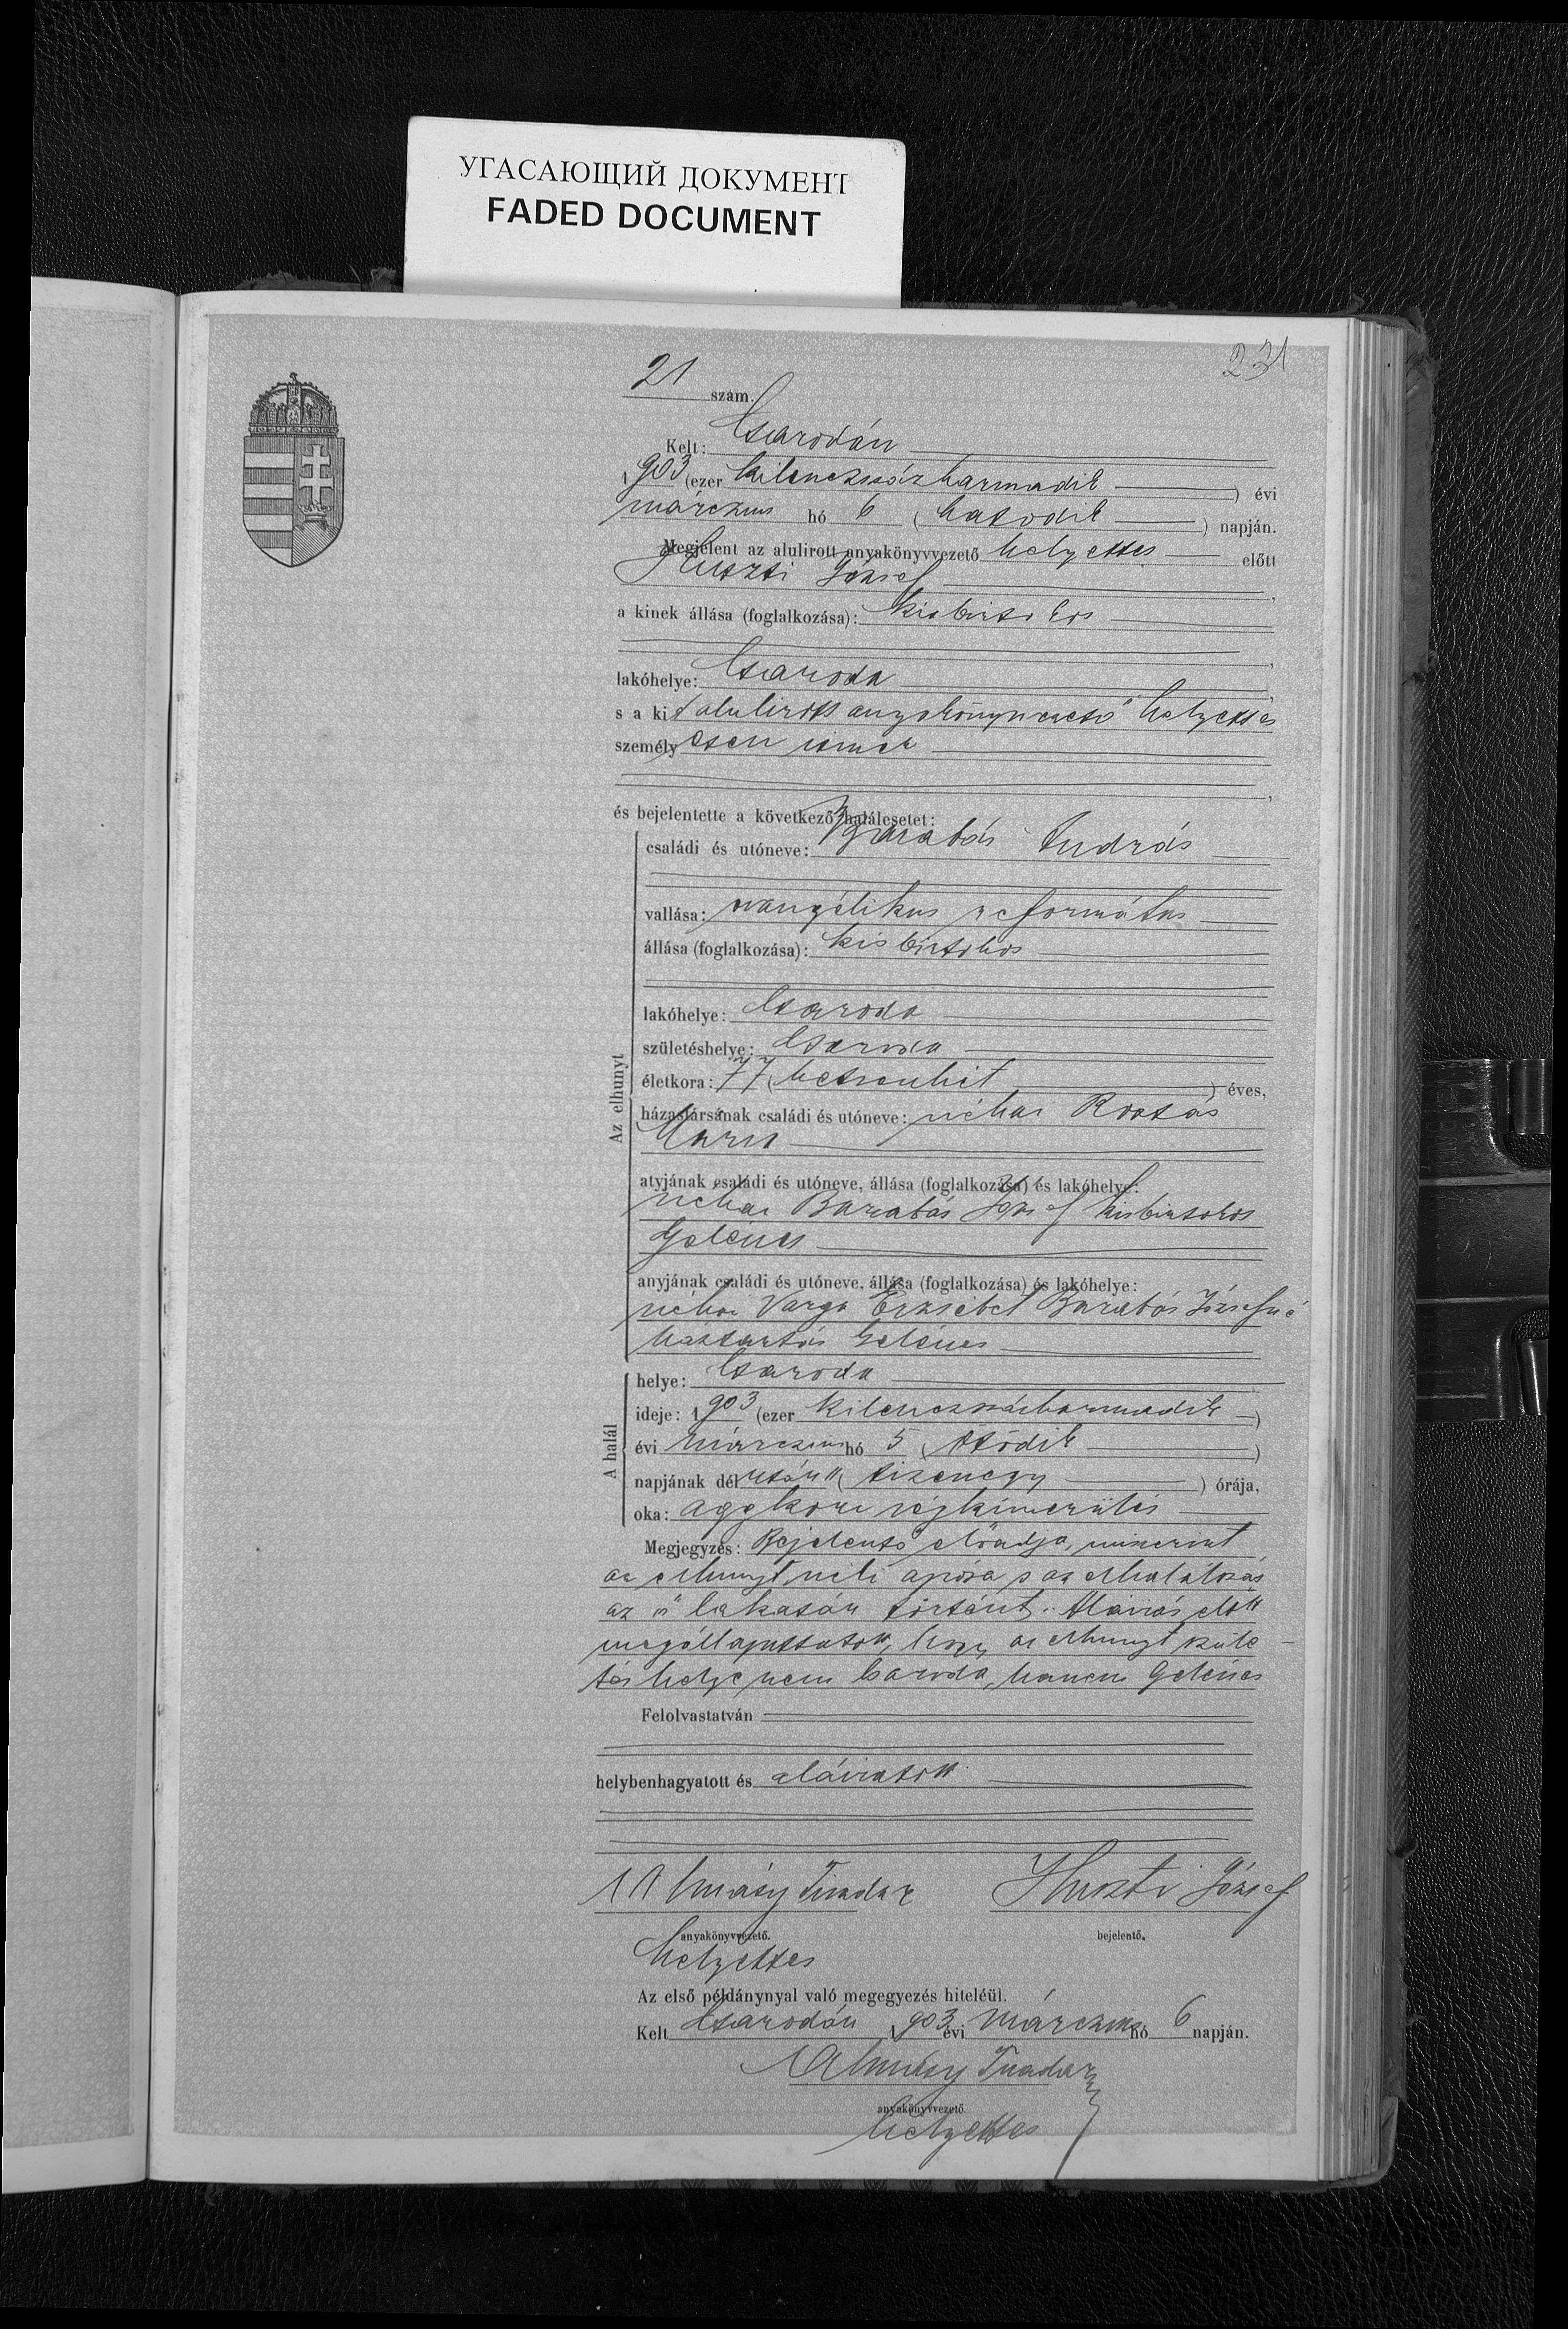 УГАСАЮЩИЙ ДОКУМЕНТ
FADED DOCUMENT
231
21 szám.
Kelt: Csarodán
1903 (ezer kilenczszázharmadik) évi
márczius hó 6 (hatodik) napján.
Megjelent az alulirott anyakönyvvezető helyettes előtt
Huszti József,
a kinek állása (foglalkozása): kisbirtokos
,
lakóhelye: Csaroda,
s a kit alulirott anyakönyvvezető helyettes
személyesen ismer
,
és bejelentette a következő halálesetet:
Az elhunyt
családi és utóneve: Barabás András
vallása: evangélikus református
állása (foglalkozása): kisbirtokos
lakóhelye: Csaroda
születéshelye: Csaroda
életkora: 77 (hetvenhét) éves,
házastársának családi és utóneve: néhai Rostás
Mária
atyjának családi és utóneve, állása (foglalkozása) és lakóhelye:
néhai Barabás József kisbirtokos
Gelénes
anyjának családi és utóneve, állása (foglalkozása) és lakóhelye:
néhai Varga Erzsébet Barabás Józsefné
háztartás Gelénes
A halál
helye: Csaroda
ideje: 1903 (ezer kilenczszázharmadik)
évi márczius hó 5 (ötödik)
napjának délután (tizenegy) órája,
oka: aggkori végkimerülés
Megjegyzés: Bejelentő előadja, miszerint
az elhunyt neki apósa s az elhalálozás
az ő lakásán történt. Aláirás előtt
megállapittatott, hogy az elhunyt szüle-
tés helye nem Csaroda, hanem Gelénes
Felolvastatván
helybenhagyatott és aláiratott
Almásy Tivadar Huszti József
anyakönyvvezető. bejelentő.
helyettes
Az első példánynyal való megegyezés hiteléül.
Kelt Csarodán 1903 évi márczius hó 6 napján.
Almásy Tivadar
anyakönyvvezető.
helyettes